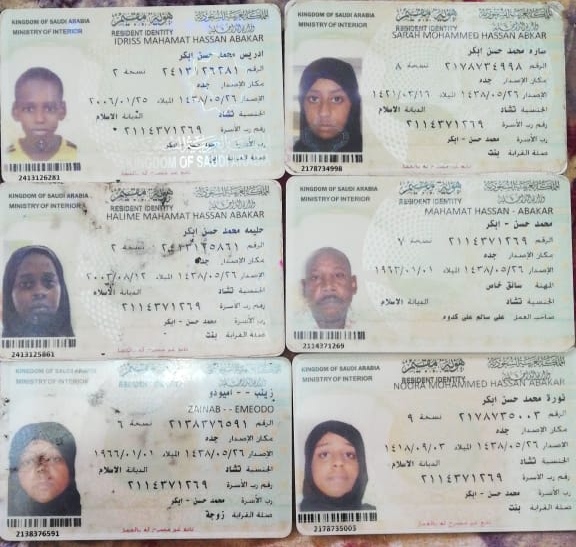 KINGDOM OF SAUDI ARABIA
MINISTRY OF INTERIOR
هوية مقيم
RESIDENT IDENTITY
IDRISS MAHAMAT HASSAN ABAKAR
ادريس محمد حسن ابكر
الرقم ٢٤١٣١٢٦٢٨١ نسخة ٢
مكان الإصدار جده
الإصدار ١٤٣٨/٠٥/٢٦ الميلاد ٢٠٠٦/٠١/٢٥
الجنسية تشاد الديانة الاسلام
رقم رب الأسرة ٢١١٤٣٧١٢٦٩
2413126281
KINGDOM OF SAUDI ARABIA
MINISTRY OF INTERIOR
هوية مقيم
RESIDENT IDENTITY
SARAH MOHAMMED HASSAN ABKAR
ساره محمد حسن ابكر
الرقم ٢١٧٨٧٣٤٩٩٨ نسخة ٨
مكان الإصدار جده
الإصدار ١٤٣٨/٠٥/٢٦ الميلاد ١٤٢١/٠٣/١٦
الجنسية تشاد الديانة الاسلام
رقم رب الأسرة ٢١١٤٣٧١٢٦٩
رب الأسرة محمد حسن - ابكر
صلة القرابة بنت
2178734998
KINGDOM OF SAUDI ARABIA
MINISTRY OF INTERIOR
هوية مقيم
RESIDENT IDENTITY
HALIME MAHAMAT HASSAN ABAKAR
حليمه محمد حسن ابكر
الرقم نسخة ٢
مكان الإصدار جده
الإصدار ١٤٣٨/٠٥/٢٦ الميلاد ٢٠٠٣/٠٨/١٢
الجنسية تشاد الديانة الاسلام
رقم رب الأسرة ٢١١٤٣٧١٢٦٩
رب الأسرة محمد حسن - ابكر
صلة القرابة بنت
2413125861
KINGDOM OF SAUDI ARABIA
MINISTRY OF INTERIOR
هوية مقيم
RESIDENT IDENTITY
MAHAMAT HASSAN - ABAKAR
محمد حسن - ابكر
الرقم ٢١١٤٣٧١٢٦٩ نسخة ٧
مكان الإصدار جده
الإصدار ١٤٣٨/٠٥/٢٦ الميلاد ١٩٦٣/٠١/٠١
المهنة سائق خاص
الجنسية تشاد الديانة الاسلام
صاحب العمل علي سالم علي كدوه
2114371269
KINGDOM OF SAUDI ARABIA
MINISTRY OF INTERIOR
هوية مقيم
RESIDENT IDENTITY
زينب - - اميودو
ZAINAB - - EMEODO
الرقم ٢١٣٨٣٧٦٥٩١ نسخة ٦
مكان الإصدار جده
الإصدار ١٤٣٨/٠٥/٢٦ الميلاد ١٩٦٦/٠١/٠١
الجنسية تشاد الديانة الاسلام
رقم رب الأسرة ٢١١٤٣٧١٢٦٩
رب الأسرة محمد حسن - ابكر
صلة القرابة زوجة
2138376591
KINGDOM OF SAUDI ARABIA
MINISTRY OF INTERIOR
هوية مقيم
RESIDENT IDENTITY
NOORA MOHAMMED HASSAN ABAKAR
نورة محمد حسن ابكر
الرقم ٢١٧٨٧٣٥٠٠٣ نسخة ٩
مكان الإصدار جده
الإصدار ١٤٣٨/٠٥/٢٦ الميلاد ١٤١٨/٠٩/٠٣
الجنسية تشاد الديانة الاسلام
رقم رب الأسرة ٢١١٤٣٧١٢٦٩
رب الأسرة محمد حسن - ابكر
صلة القرابة بنت
2178735003